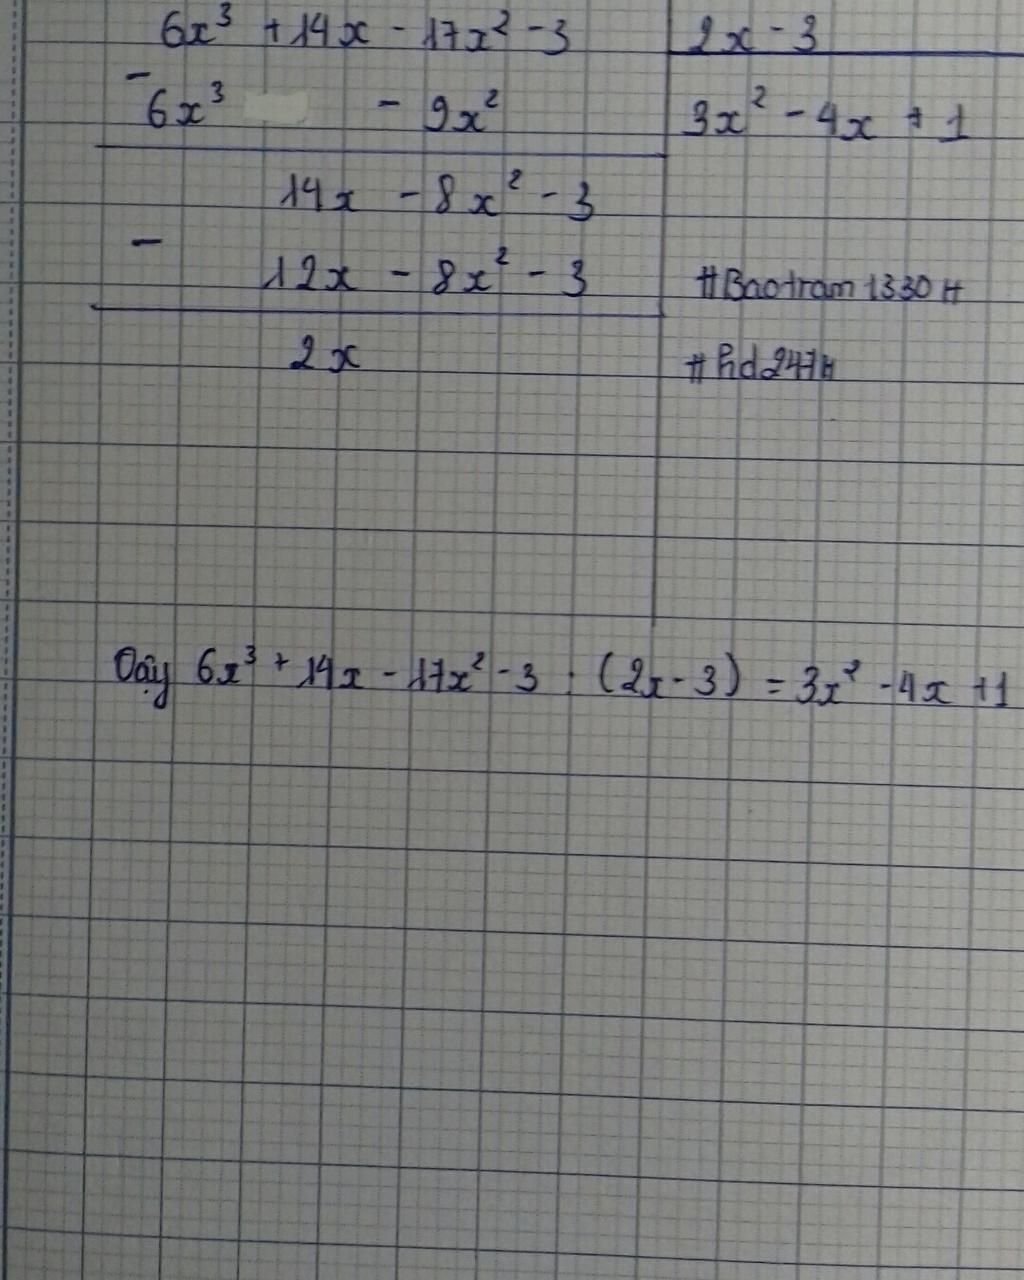 6x³ + 14x - 17x² - 3 2x - 3
- 6x³ - 9x² 3x² - 4x + 1
14x - 8x² - 3
- 12x - 8x² - 3 #Baotram1330#
2x
Vậy 6x³ + 14x - 17x² - 3 : (2x - 3) = 3x² - 4x + 1